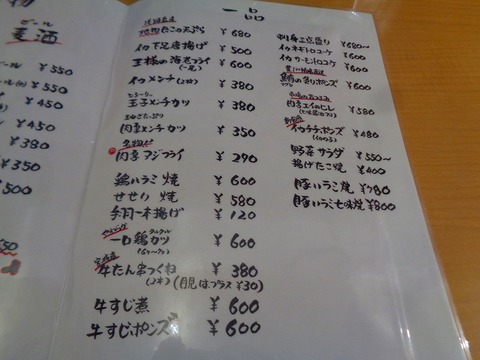 物
ビール
麦酒
¥550
¥550
¥450
¥380
¥450
¥380
¥350
¥500
一品
たこの天ぷら ¥680
イカ下足唐揚げ ¥500
王様の海老フライ ¥600
イカメンチ(2ヶ) ¥380
とろーり
玉子メンチカツ ¥380
肉吉メンチカツ ¥350
名物
肉吉アジフライ ¥290
鶏ハラミ焼 ¥600
せせり焼 ¥580
手羽一本揚げ ¥120
一口鶏カツ ¥600
牛たん串つくね ¥380
(2本)(月見はプラス¥30)
牛すじ煮 ¥600
牛すじポンズ ¥600
刺身三点盛り ¥680〜
¥600
¥600
ポンズ
エイのヒレ ¥580
イカチチポンズ ¥480
野菜サラダ ¥550〜
揚げたこ焼 ¥400
豚ハラミ焼 ¥780
豚ハラミ七味焼 ¥800